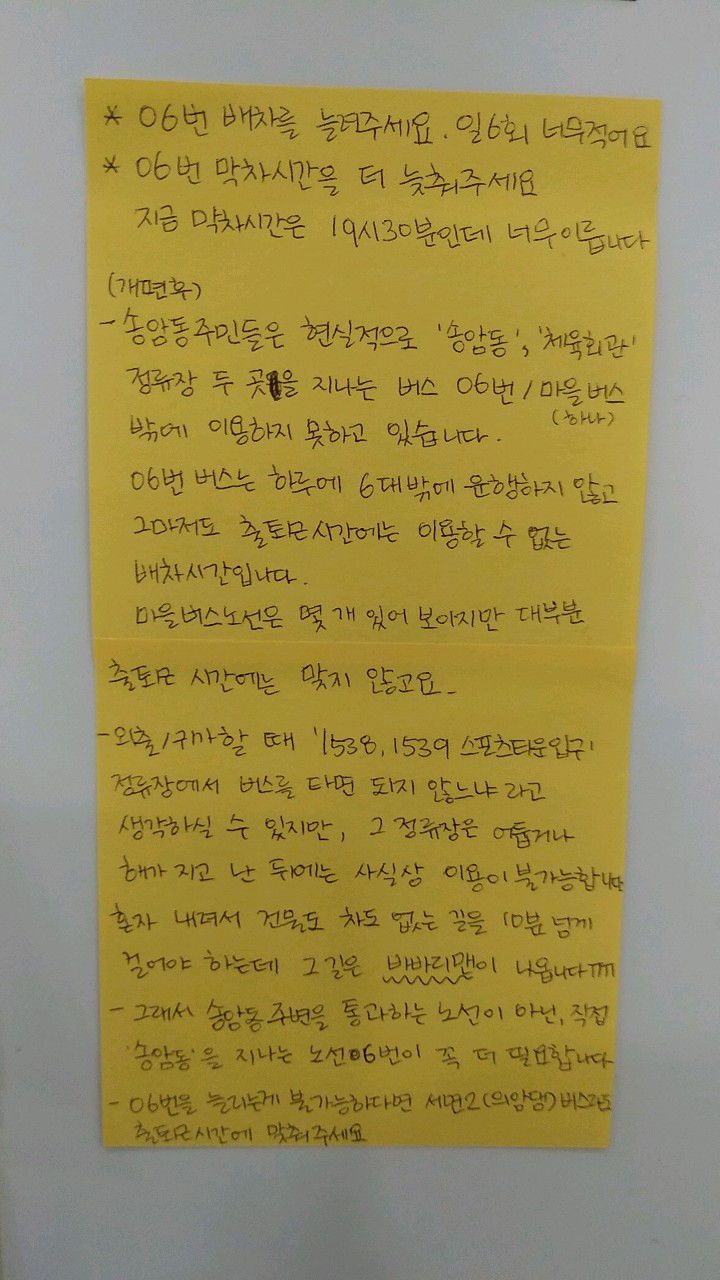 * 06번 배차를 늘려주세요. 일6회 너무적어요
* 06번 막차시간을 더 늦춰주세요
지금 막차시간은 19시30분인데 너무이릅니다
(개편후)
- 송암동주민들은 현실적으로 '송암동', '체육회관'
정류장 두 곳을 지나는 버스 06번/마을버스
(하나)
밖에 이용하지 못하고 있습니다.
06번 버스는 하루에 6대밖에 운행하지 않고
그마저도 출퇴근시간에는 이용할 수 없는
배차시간입니다.
마을버스노선은 몇 개 있어 보이지만 대부분
출퇴근 시간에는 맞지 않고요.
- 외출/귀가할 때 '1538, 1539 스포츠타운입구'
정류장에서 버스를 타면 되지 않느냐 라고
생각하실 수 있지만, 그 정류장은 어둡거나
해가 지고 난 뒤에는 사실상 이용이 불가능합니다
혼자 내려서 건물도 차도 없는 길을 10분 넘게
걸어야 하는데 그길은 바바리맨이 나옵니다ㅠㅠ
- 그래서 송암동주변을 통과하는 노선이 아닌, 직접
'송암동'을 지나는 노선06번이 꼭 더 필요합니다
- 06번을 늘리는게 불가능하다면 서면2(의암댐)버스라도
출퇴근시간에 맞춰주세요